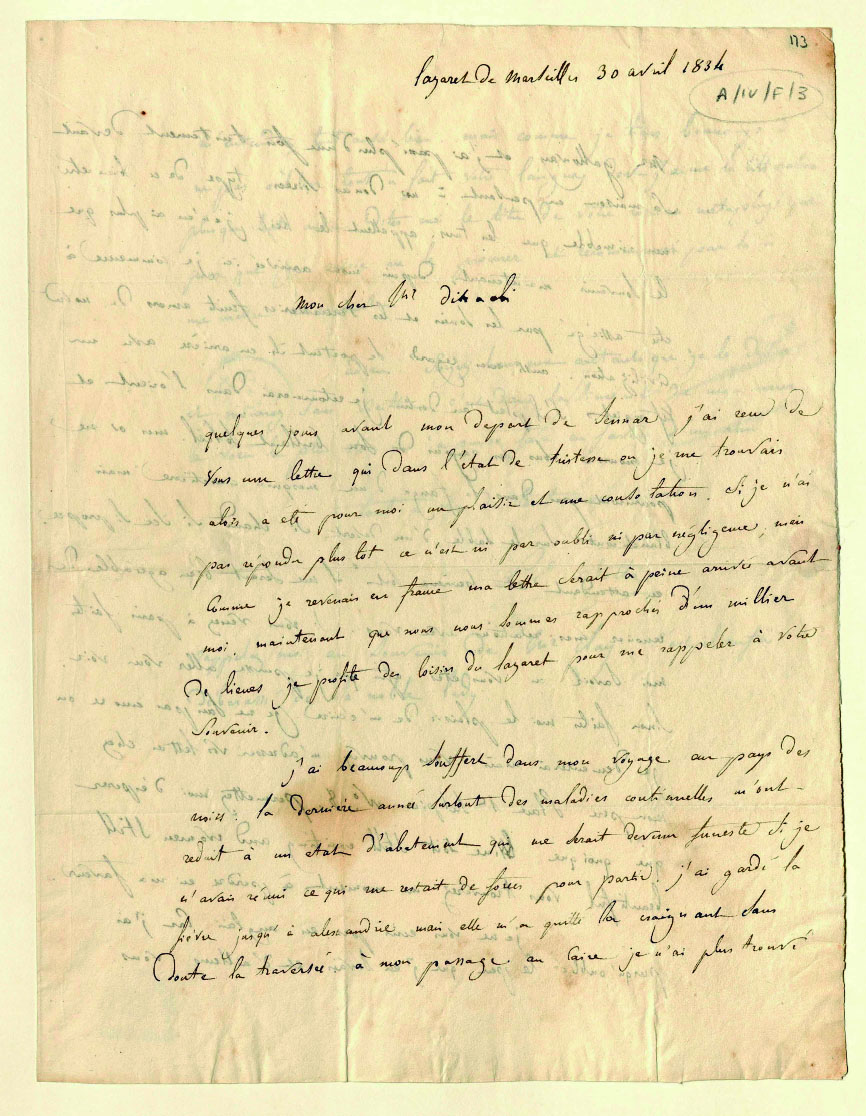 173
lazaret de Marseilles 30 avril 1834
A/IV/F/3
Mon cher Mr
quelques jours avant mon depart de Sennar j'ai reçu de
vous une lettre qui dans l'état de tristesse ou je me trouvais
alors a eté pour moi un plaisir et une consolation. Si je n'ai
pas répondu plus tot ce n'est ni par oubli ni par négligence, mais
comme je revenais en france ma lettre serait à peine arrivée avant
moi. maintenant que nous nous sommes rapprochés d'un millier
De lieues je profite des loisirs du lazaret pour me rappeler à votre
Souvenir.
j'ai beaucoup souffert dans mon voyage au pays des
noirs : la dernière année surtout des maladies continuelles m'ont
reduit à un etat d'abatement qui me serait devenu funeste si je
n'avais réuni ce qui me restait de forces pour partir. j'ai gardé la
fièvre jusqu'à alexandrie mais elle m'a quitté la craignant sans
Doute la traversée à mon passage au Caire je n'ai plus trouvé